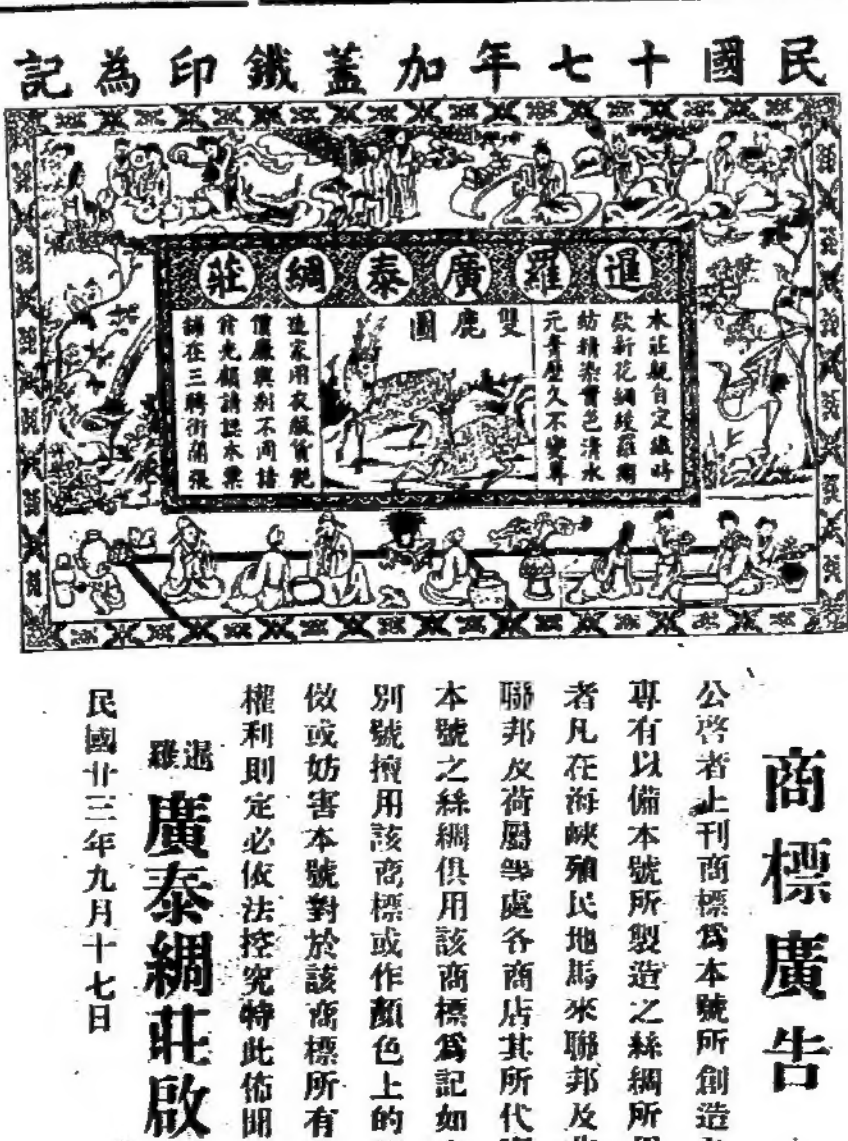 民國十七年加蓋鐵印為記
暹羅廣泰綢莊
本莊親自定織時
款新花綢綾羅縐
紡精染實色清水
元青歷久不變專
雙鹿圖
造家用衣服貨乾
價廉與別不同諸
君光顧請認本業
舖在三聘街蘭張
商標廣告
公啓者上刊商標爲本號所創造
專有以備本號所製造之絲綢所
者凡在海峽殖民地馬來聯邦及
聯邦及荷屬等處各商店其所代
本號之絲綢俱用該商標爲記如
別號擅用該商標或作顏色上的
倣或妨害本號對於該商標所有
權利則定必依法控究特此佈聞
暹羅廣泰綢莊啟
民國廿三年九月十七日